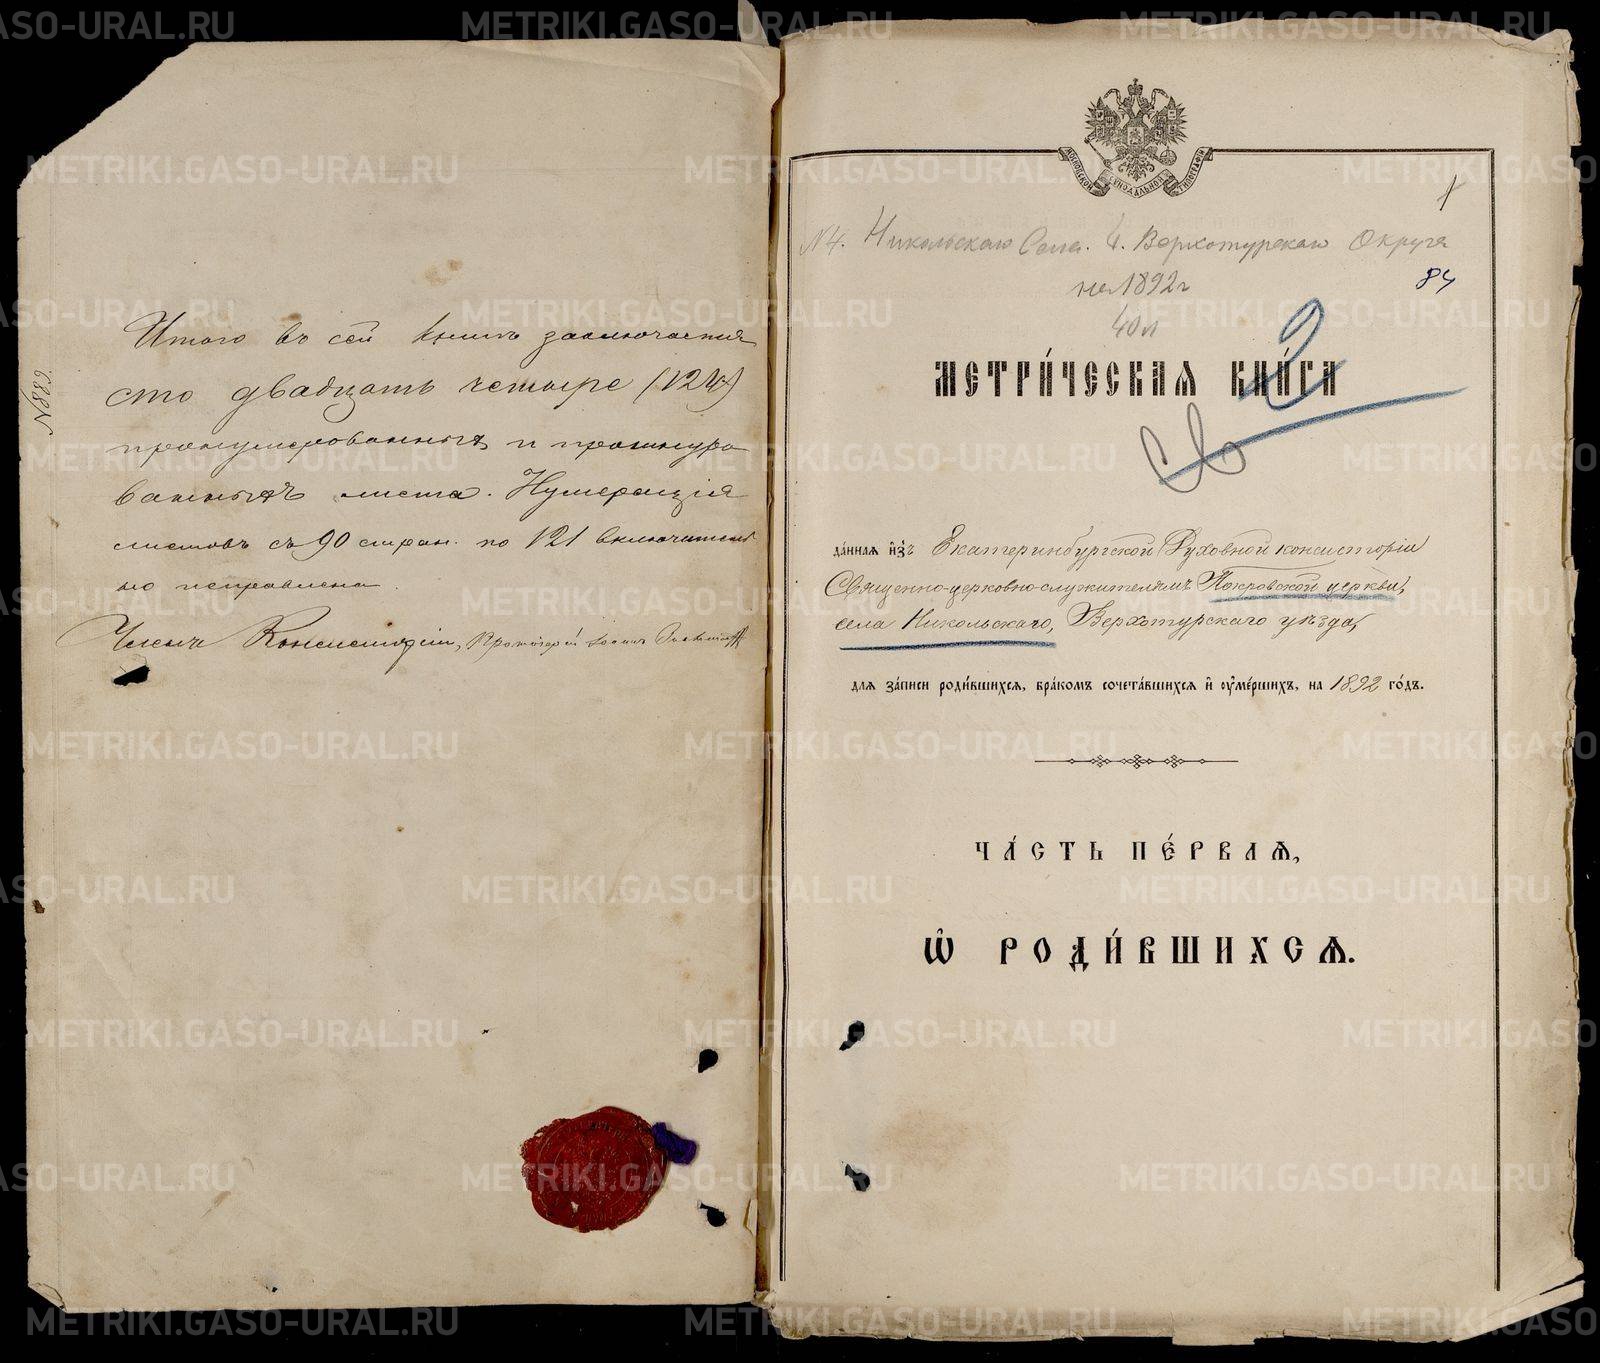 Итого въ сей книгѣ заключается
сто двадцать четыре (124)
пронумерованныхъ и прошнуро
ванныхъ листа. Нумерація
листовъ съ 90 стран. по 121 включитель
но исправлена.
Членъ Консисторіи, Протоіерей
№ 883
МОСКОВСКОЙ СѴНОДАЛЬНОЙ ТИПОГРАФІИ
1
№ 4. Никольскаго Села. Верхотурскаго Округа
на 1892 г
84
40 л
2
МЕТРИ́ЧЕСКАЯ КНИ́ГА
Св
да́нная и҆зъ Екатеринбургской Духовной консисторіи
Священно-церковно-служителямъ Покровской церкви,
села Никольскаго, Верхотурскаго уѣзда,
для за́писи роди́вшихся, бра́комъ сочета́вшихся и҆ ᲂу҆ме́ршихъ, на 1892 го́дъ.
ЧА́СТЬ ПЕ́РВАЯ,
Ѽ РОДИ́ВШИХСЯ.
METRIKI.GASO-URAL.RU